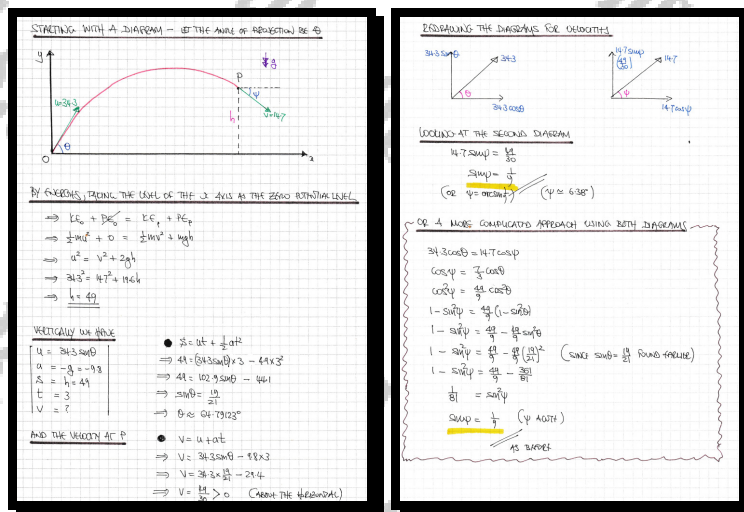 STARTING WITH A DIAGRAM – LET THE ANGLE OF PROJECTION BE θ
y
g
P
ψ
u=34.3
h
v=14.7
θ
O
x
BY ENERGIES, TAKING THE LEVEL OF THE x AXIS AS THE ZERO POTENTIAL LEVEL
⇒ KE₀ + PE₀ = KEₚ + PEₚ
⇒ ½mu² + 0 = ½mv² + mgh
⇒ u² = v² + 2gh
⇒ 34.3² = 14.7² + 19.6h
⇒ h = 49
VERTICALLY WE HAVE
u = 34.3 sinθ
a = -g = -9.8
s = h = 49
t = 3
v = ?
● s = ut + ½at²
⇒ 49 = (34.3sinθ)×3 - 4.9×3²
⇒ 49 = 102.9 sinθ - 44.1
⇒ sinθ = 19/21
⇒ θ ≈ 64.79123°
AND THE VELOCITY AT P
● v = u + at
⇒ v = 34.3sinθ - 9.8×3
⇒ v = 34.3×19/21 - 29.4
⇒ v = 49/30 > 0 (ABOVE THE HORIZONTAL)
REDRAWING THE DIAGRAMS FOR VELOCITIES
34.3 sinθ
34.3
θ
34.3cosθ
14.7 sinψ
(49/30)
14.7
ψ
14.7cosψ
LOOKING AT THE SECOND DIAGRAM
14.7 sinψ = 49/30
sinψ = 1/9
(OR ψ = arcsin 1/9) (ψ ≈ 6.38°)
OR A MORE COMPLICATED APPROACH USING BOTH DIAGRAMS
34.3cosθ = 14.7cosψ
cosψ = 7/3 cosθ
cos²ψ = 49/9 cos²θ
1 - sin²ψ = 49/9 (1 - sin²θ)
1 - sin²ψ = 49/9 - 49/9 sin²θ
1 - sin²ψ = 49/9 - 49/9 (19/21)² (SINCE sinθ = 19/21 FOUND EARLIER)
1 - sin²ψ = 49/9 - 361/81
1/81 = sin²ψ
sinψ = 1/9 (ψ ACUTE)
AS BEFORE